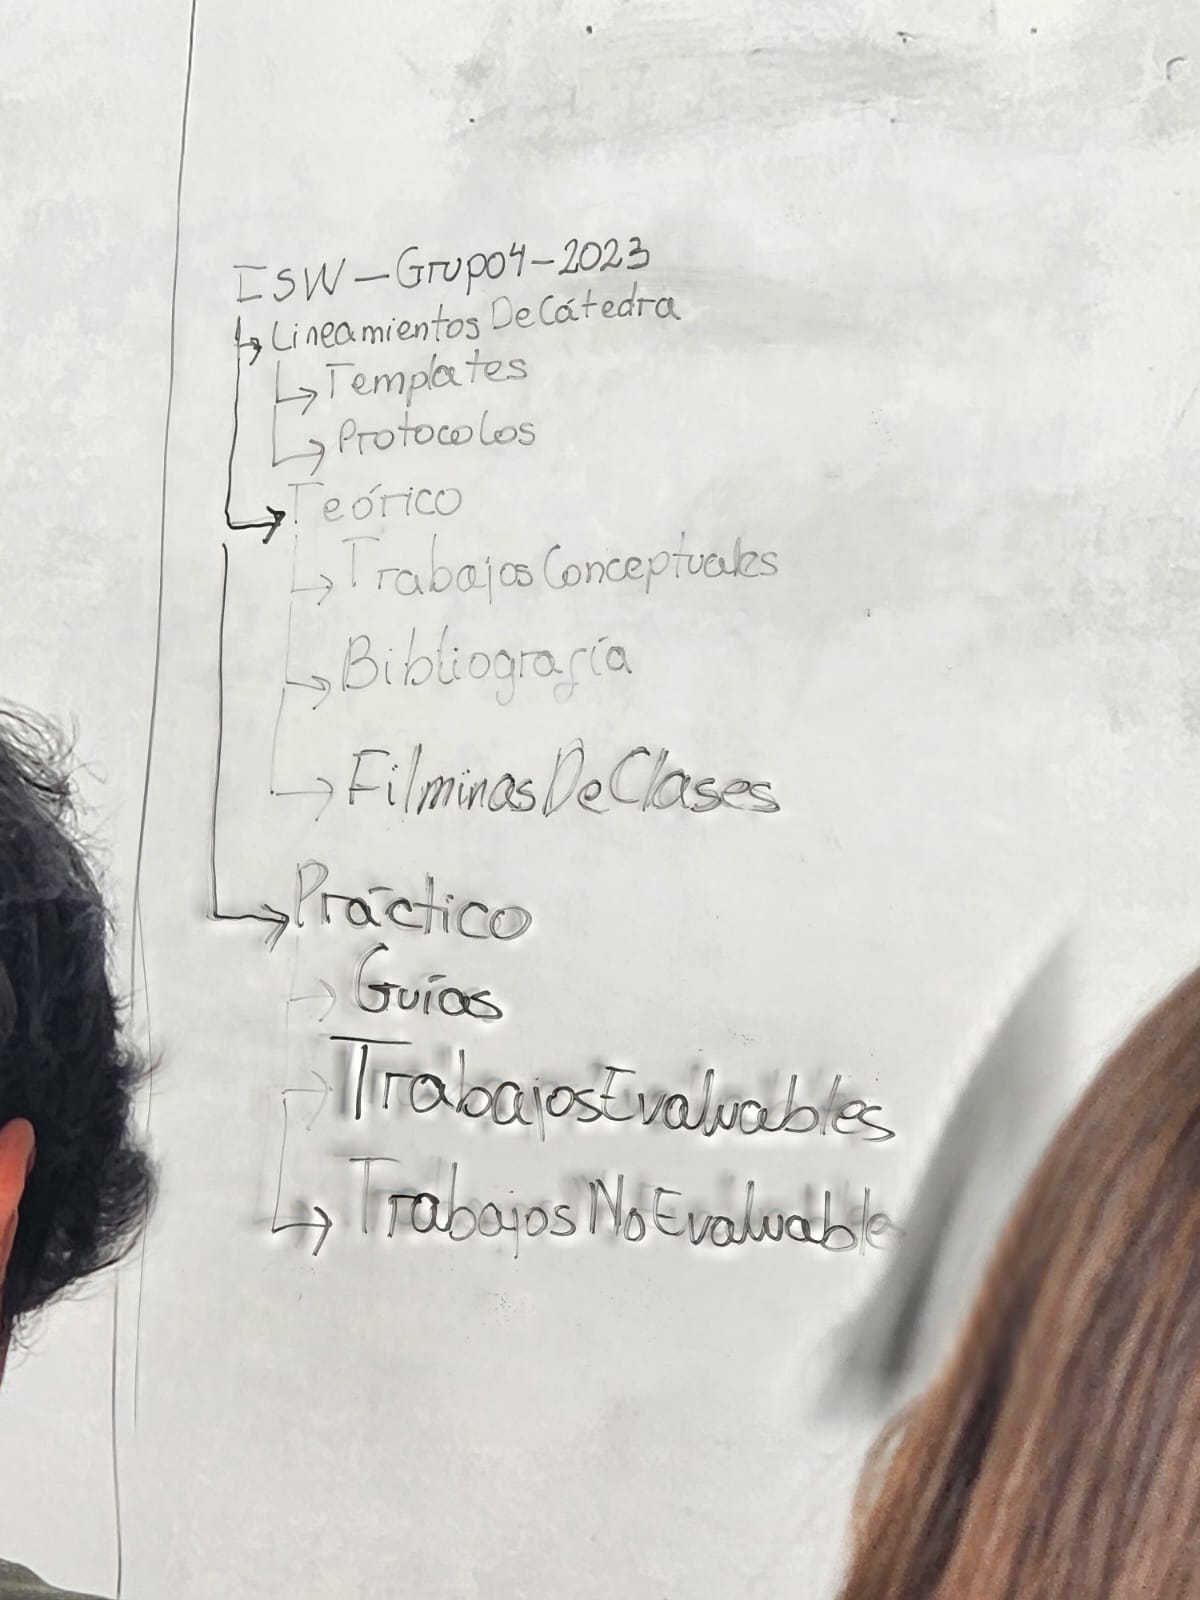 ISW-Grupo4-2023
LineamientosDeCátedra
Templates
Protocolos
Teórico
TrabajosConceptuales
Bibliografía
FilminasDeClases
Práctico
Guías
TrabajosEvaluables
TrabajosNoEvaluable